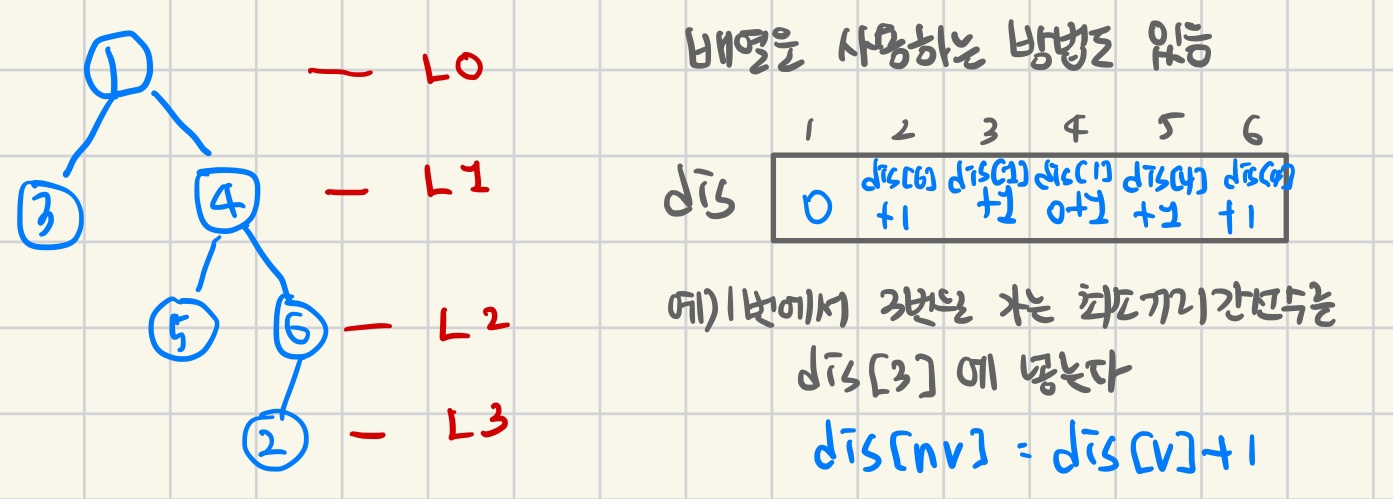 1
— L0
3
4
— L1
5
6
— L2
2
— L3
배열을 사용하는 방법도 있음
1 2 3 4 5 6
dis
0 dis[6] +1 dis[1] +1 dis[1] 0+1 dis[4] +1 dis[4] +1
예) 1번에서 3번으로 가는 최단거리 간선수는
dis[3] 에 넣는다
dis[nv] = dis[v]+1